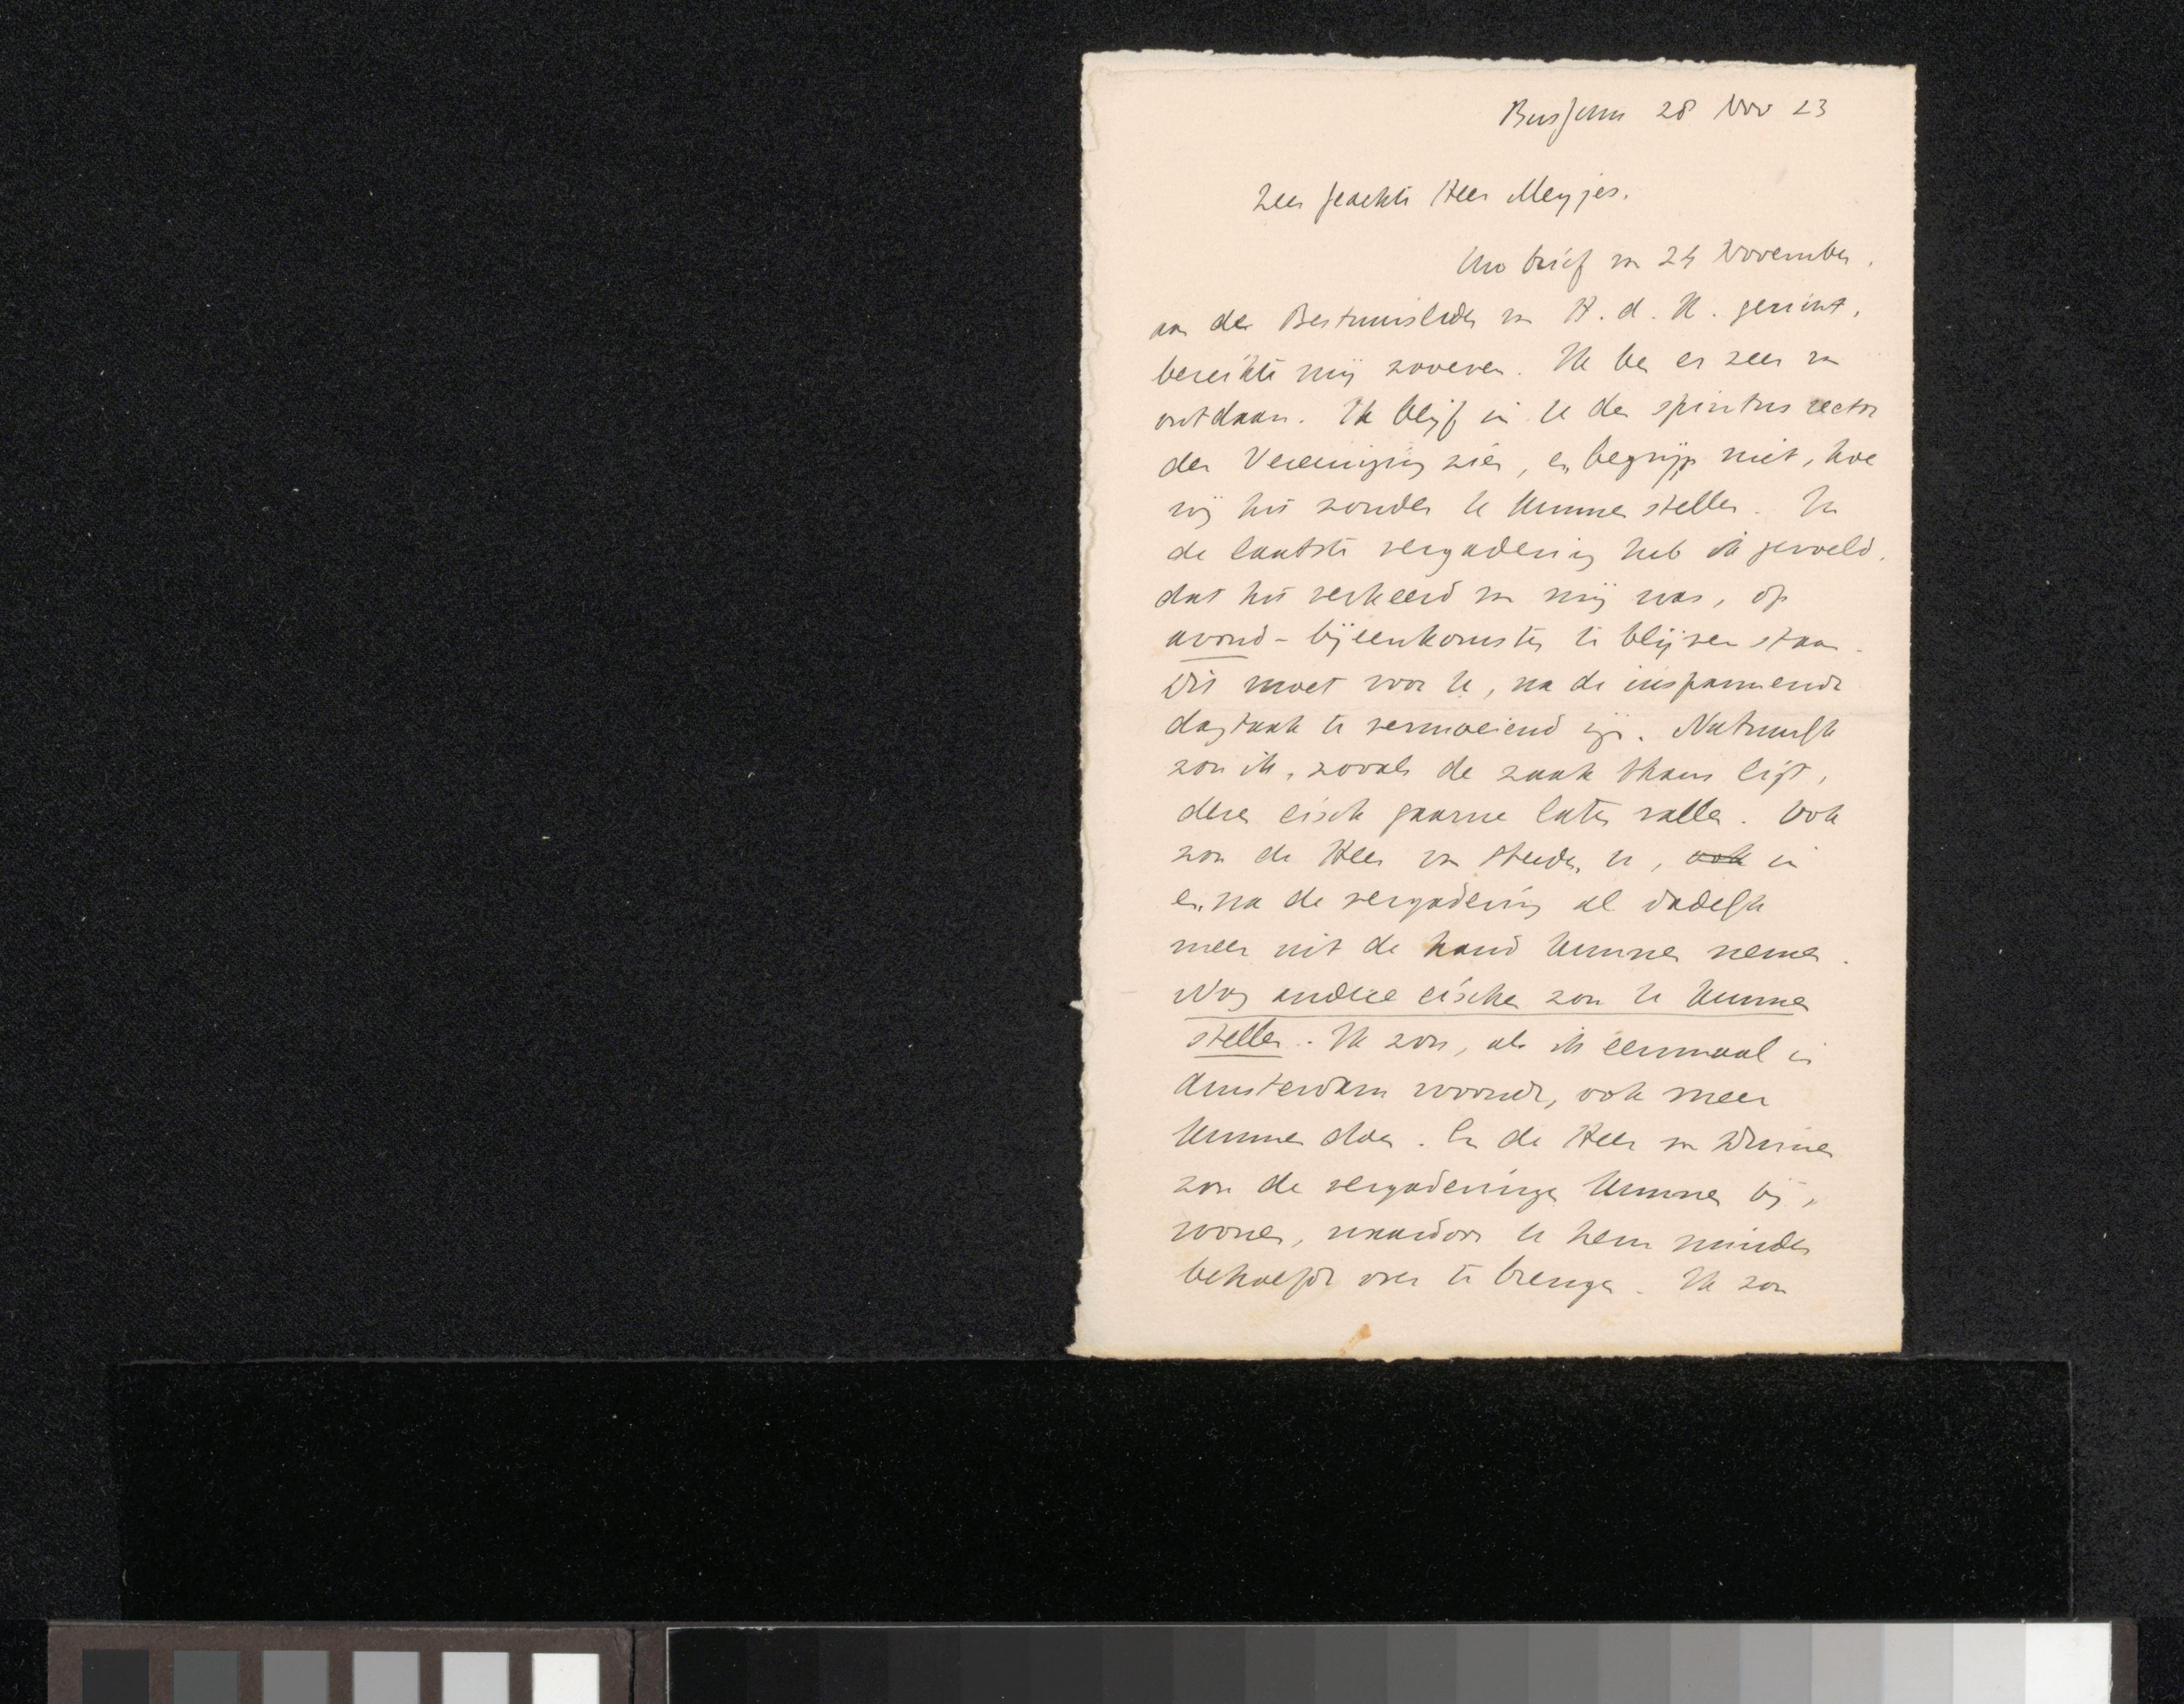 Bussum 28 Nov 23
Zeer geachte Heer Meyjes.
Uw brief van 24 November,
aan de Bestuursleden van K. d. K. gericht,
bereikte mij zooeven. Ik ben er zeer van
ontdaan. Ik blijf in U den spiritus rector
der Vereeniging zien, en begrijp niet, hoe
wij het zonder U kunnen stellen. In
de laatste vergadering heb ik gevoeld,
dat het verkeerd van mij was, op
avond-bijeenkomsten te blijven staan.
Dit moet voor U, na de inspannende
dagtaak te vermoeiend zijn. Natuurlijk
zou ik, zooals de zaak thans ligt,
dezen eisch gaarne laten vallen. Ook
zou de Heer van U, ook in
en na de vergadering al dadelijk
meer uit de hand kunnen nemen.
Nog andere eischen zou U kunnen
stellen. Ik zou, als ik eenmaal in
Amsterdam woonde, ook meer
kunnen doen. En de Heer van
zou de vergaderingen kunnen bij,
wonen, waardoor U hem minder
behoefde over te brengen. Ik zou